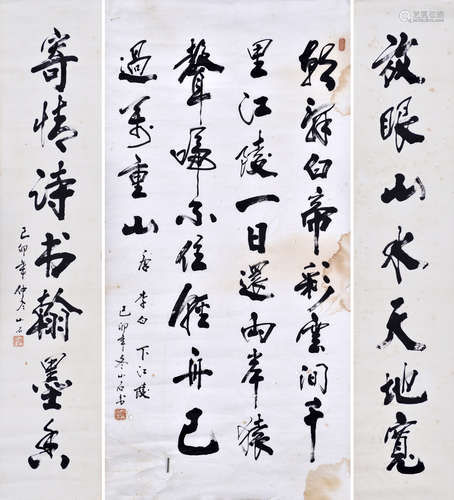 放眼山水天地寬
朝辞白帝彩雲间千
里江陵一日還两岸猿
聲啼不住輕舟已
過萬重山
唐 李白 下江陵
己卯年冬
寄情诗书翰墨香
己卯年仲冬